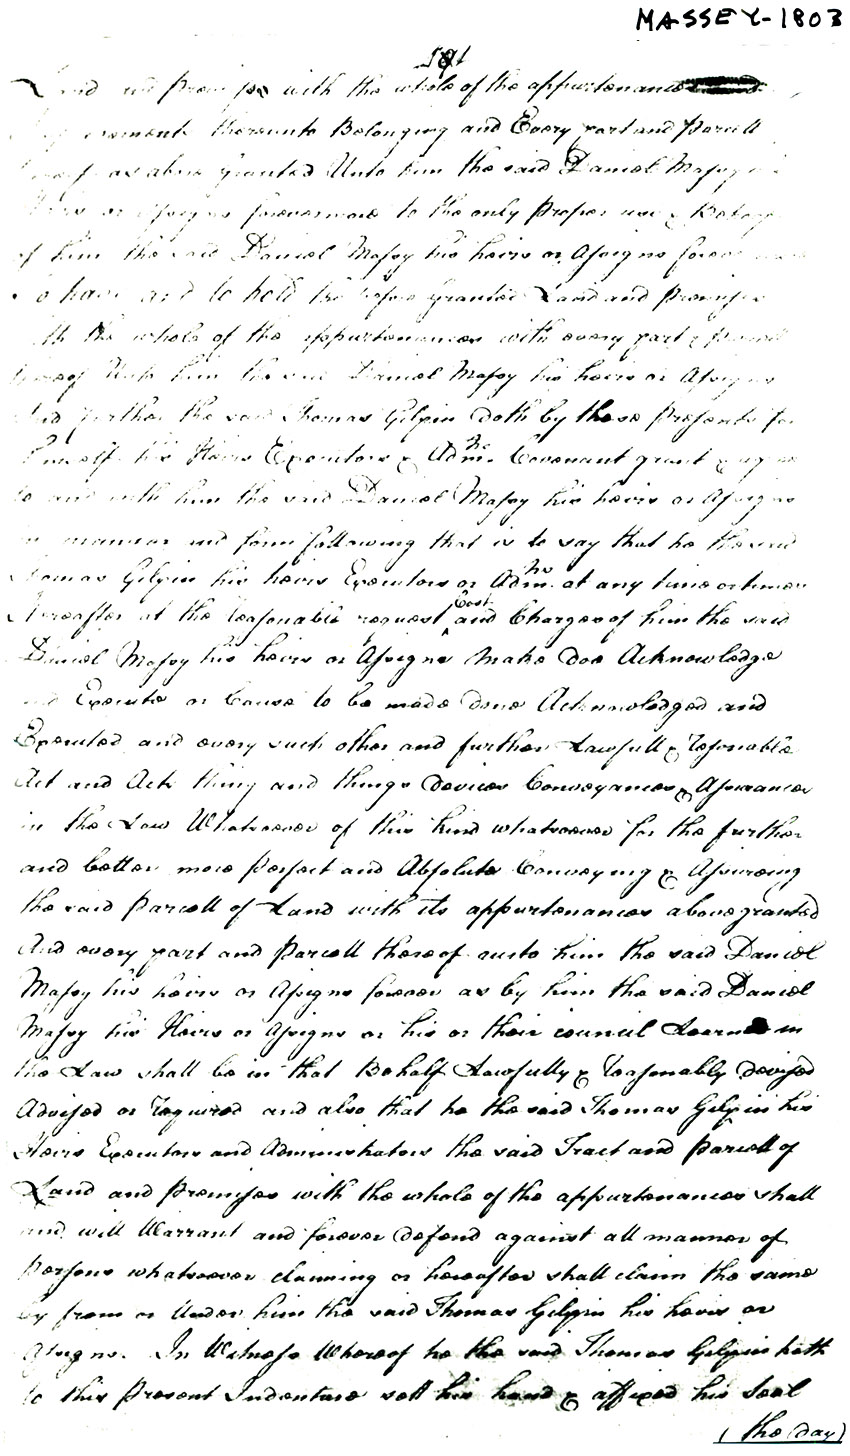 MASSEY-1803
Land and Premises with the whole of the appurtenances
thereunto Belonging and Every part and Parcell
as above Granted Unto him the said Daniel Massy
Heirs or Assigns forevermore to the only Proper use &
of him the said Daniel Massy his heirs or Assigns
To have and to hold the before Granted Land and Premises
with the whole of the appurtenances with every part & Parcell
thereof Unto him the said Daniel Massy his heirs or Assigns
And further the said Thomas Gilpin doth by these Presents for
himself his Heirs Executors & Adm.rs Covenant grant & agree
to and with him the said Daniel Massy his heirs or Assigns
in manner and form following that is to say that he the said
Thomas Gilpin his heirs Executors or Adm.rs at any time or times
Hereafter at the reasonable request Cost and Charges of him the said
Daniel Massy his heirs or Assigns make doe Acknowledge
and Execute or Cause to be made done Acknowledged and
Executed and every such other and further Lawfull & reasonable
Act and Acts thing and things devices Conveyances & Assurances
in the Law Whatsoever of this kind whatsoever for the further
and better more Perfect and Absolute Conveying & Assureing
the said Parcell of Land with its appurtenances above granted
And every part and Parcell thereof unto him the said Daniel
Massy his heirs or Assigns forever as by him the said Daniel
Massy his Heirs or Assigns or his or their council Learned in
the Law shall be in that Behalf Lawfully & reasonably devised
Advised or required and also that he the said Thomas Gilpin his
Heirs Executors and Administrators the said Tract and Parcell of
Land and Premises with the whole of the appurtenances shall
and will Warrant and forever defend against all manner of
Persons whatsoever claiming or hereafter shall claim the same
by from or Under him the said Thomas Gilpin his heirs or
Assigns. In Witness Whereof he the said Thomas Gilpin hath
to this Present Indenture sett his hand & affixed his Seal
(the day)